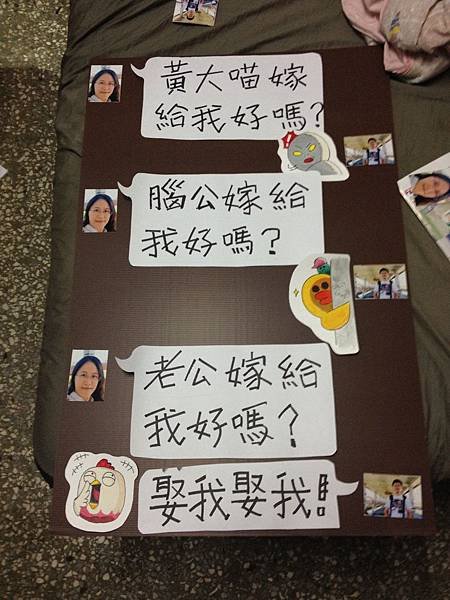 黃大喵嫁
給我好嗎?
腦公嫁給
我好嗎?
老公嫁給
我好嗎?
娶我娶我!!